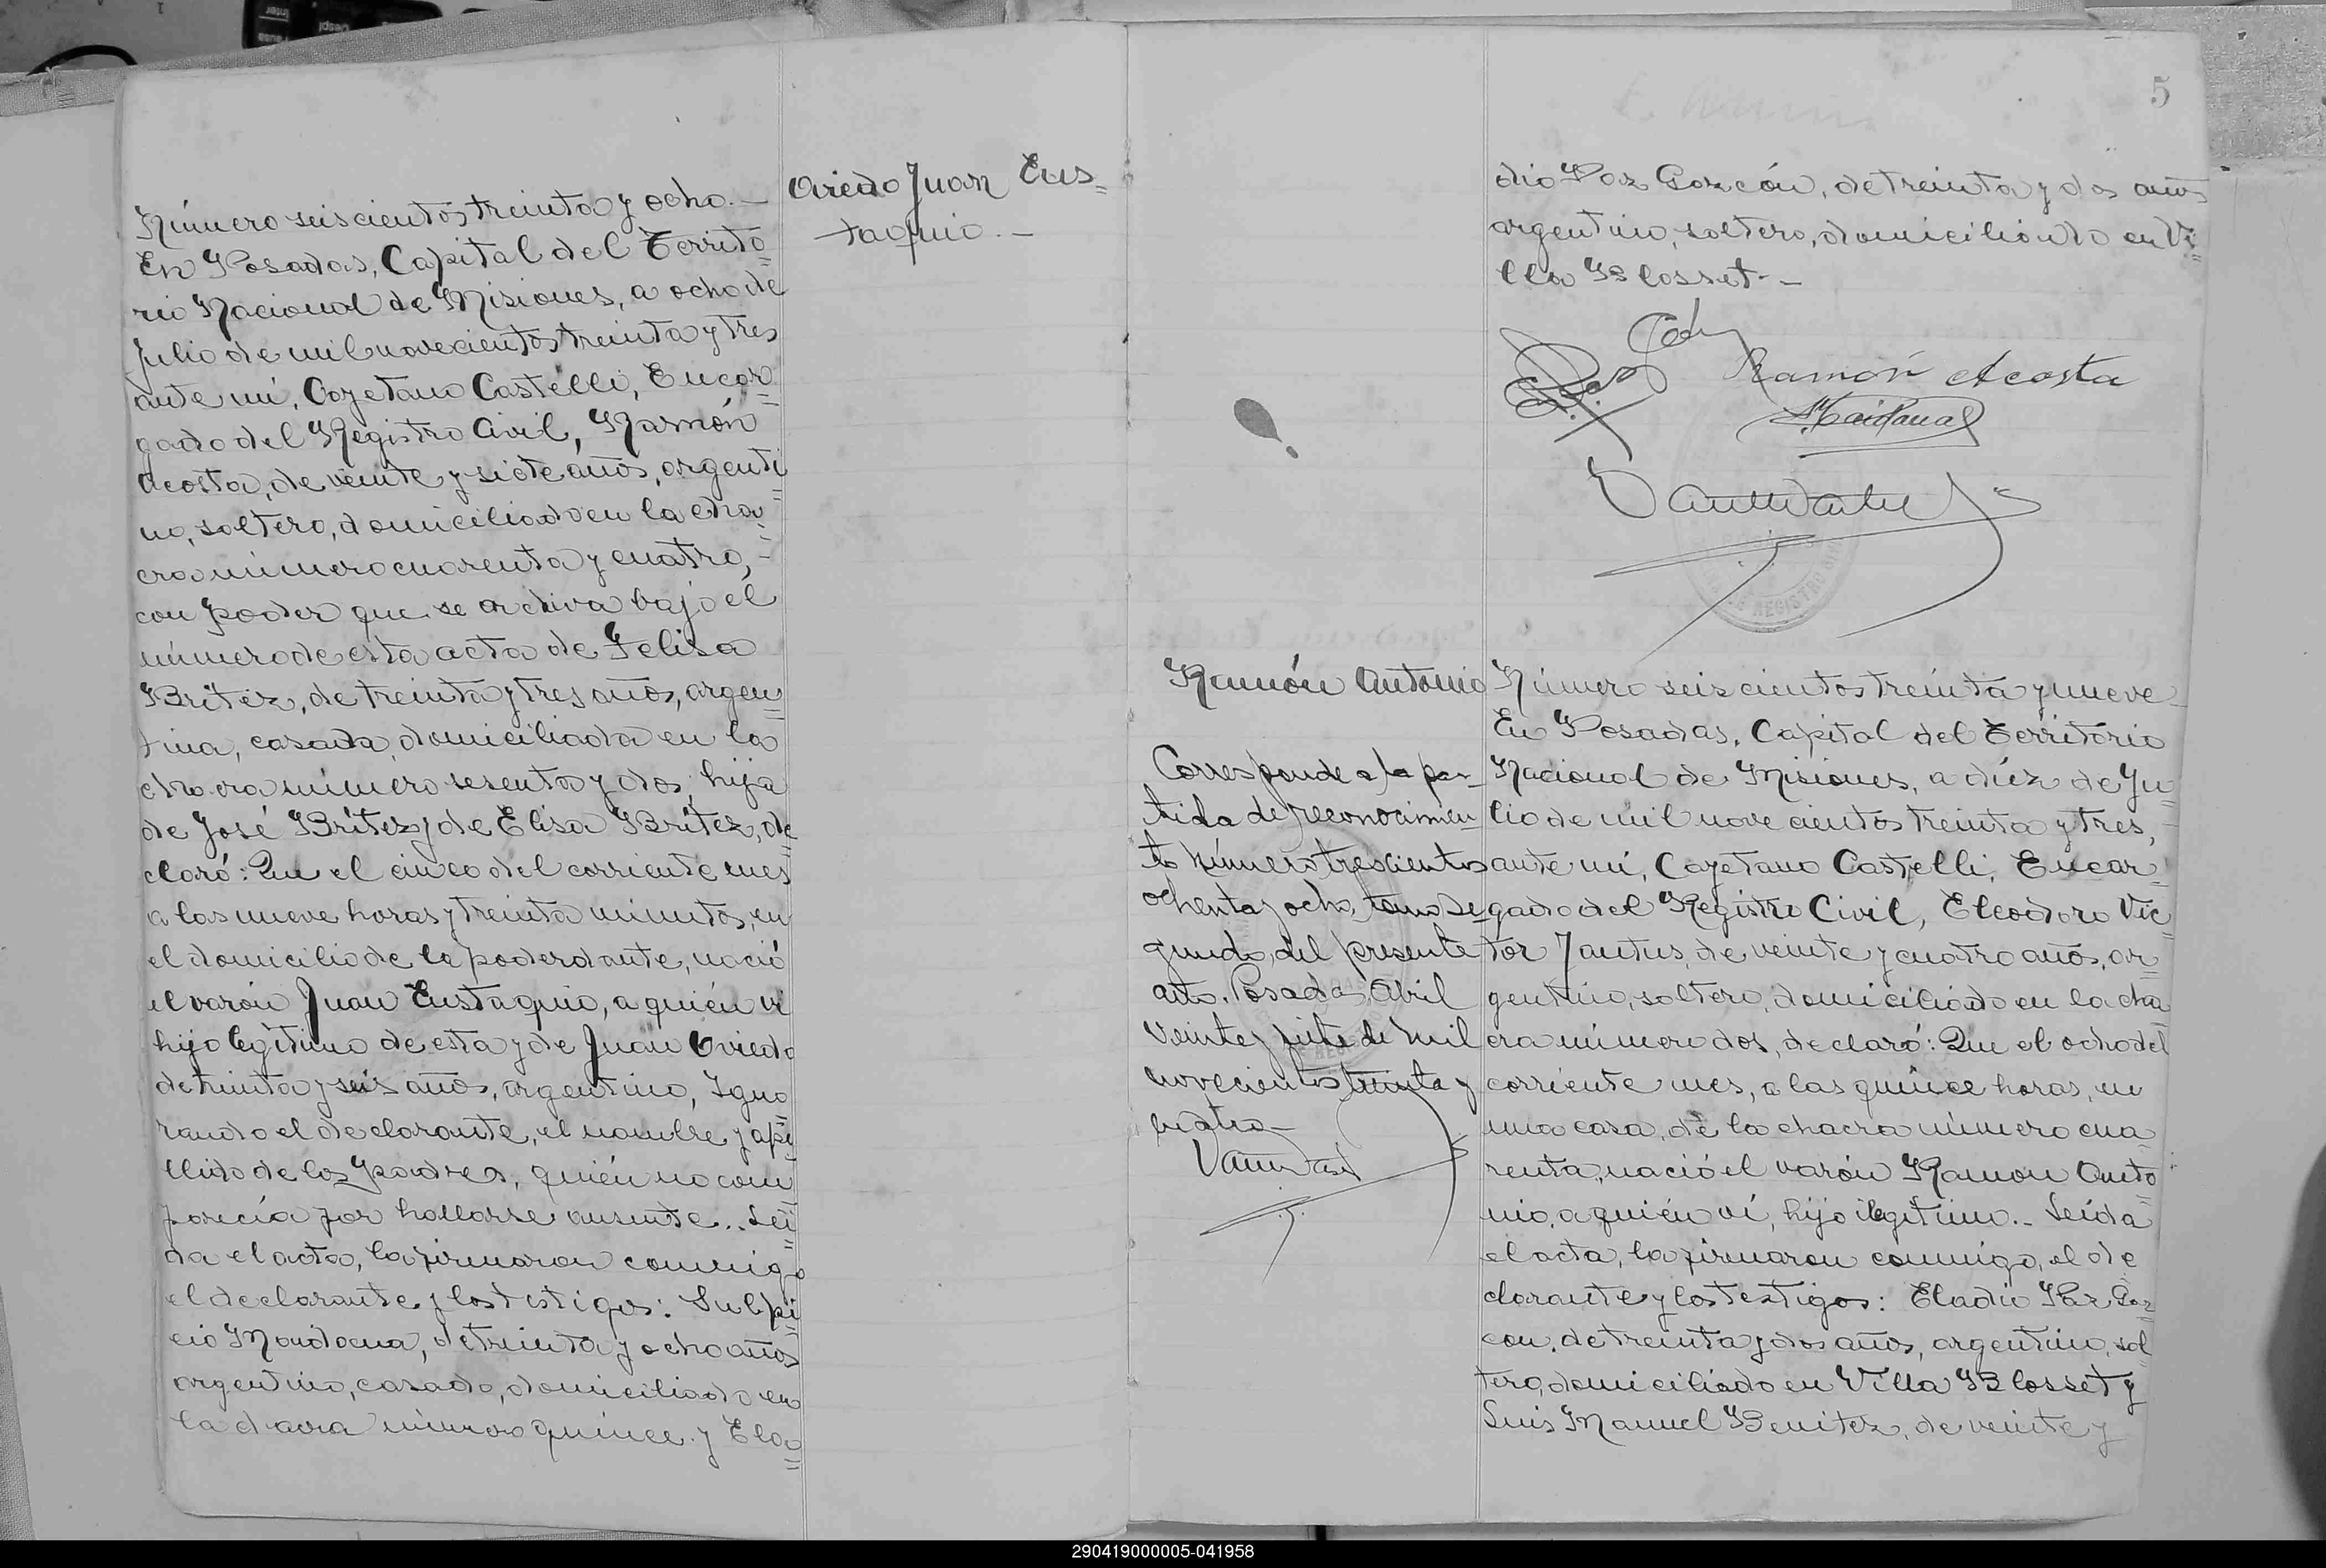 Número seiscientos treinta y ocho.—
En Posadas, Capital del Territo=
rio Nacional de Misiones, a ocho de
Julio de mil novecientos treinta y tres
ante mí, Cayetano Castelli, Encar=
gado del Registro Civil, Ramón
Acosta, de veinte y siete años, argenti=
no, soltero, domiciliado en la cha=
cra número cuarenta y cuatro,-
con poder que se archiva bajo el
número de esta acta de Felisa
Britez, de treinta y tres años, argen=
tina, casada, domiciliada en la
chacra número sesenta y dos, hija
de José Britez y de Elisa Britez, de=
claró: Que el cinco del corriente mes
a las nueve horas y treinta minutos, en
el domicilio de la poderdante, nació
el varón Juan Eustaquio, a quién vi
hijo legítimo de esta y de Juan Oviedo
de treinta y seis años, argentino, Igno=
rando el declarante, el nombre y ape=
llido de los padres, quién no com=
parecía por hallarse ausente.. Leí=
da el acta, la firmaron conmigo
el declarante y los testigos: Sulpi=
cio Maidana, de treinta y ocho años
argentino, casado, domiciliado en
la chacra número quince y Ela=
Oviedo Juan Eus=
taquio.—
5
dio Paz Garcón, de treinta y dos años
argentino, soltero, domiciliado en Vi=
lla Blosset.-
Ramón Acosta
S. Maidana
Ramón Antonio
Corresponde a la par-
tida de reconocimien-
to número trescientos
ochenta y ocho, tomo se-
gundo, del presente
año. Posadas, Abril
veinte y siete de mil
novecientos treinta y
cuatro—
DE REGISTRO
Número seiscientos treinta y nueve-
En Posadas, Capital del Territorio
Nacional de Misiones, a diéz de Ju=
lio de mil novecientos treinta y tres,
ante mí, Cayetano Castelli, Encar=
gado del Registro Civil, Eleodoro Víc=
tor Jantus, de veinte y cuatro años, ar=
gentino, soltero, domiciliado en la cha=
cra número dos, declaró: Que el ocho del
corriente mes, a las quince horas, en
una casa, de la chacra número cua=
renta, nació el varón Ramon Anto=
nio, a quién ví, hijo ilegítimo.- Leída
el acta, la firmaron conmigo, el de
clarante y los testigos: Eladio Paz Gar=
con, de treinta y dos años, argentino, sol=
tero, domiciliado en Villa Blosset y
Luis Manuel Benitez, de veinte y
290419000005-041958